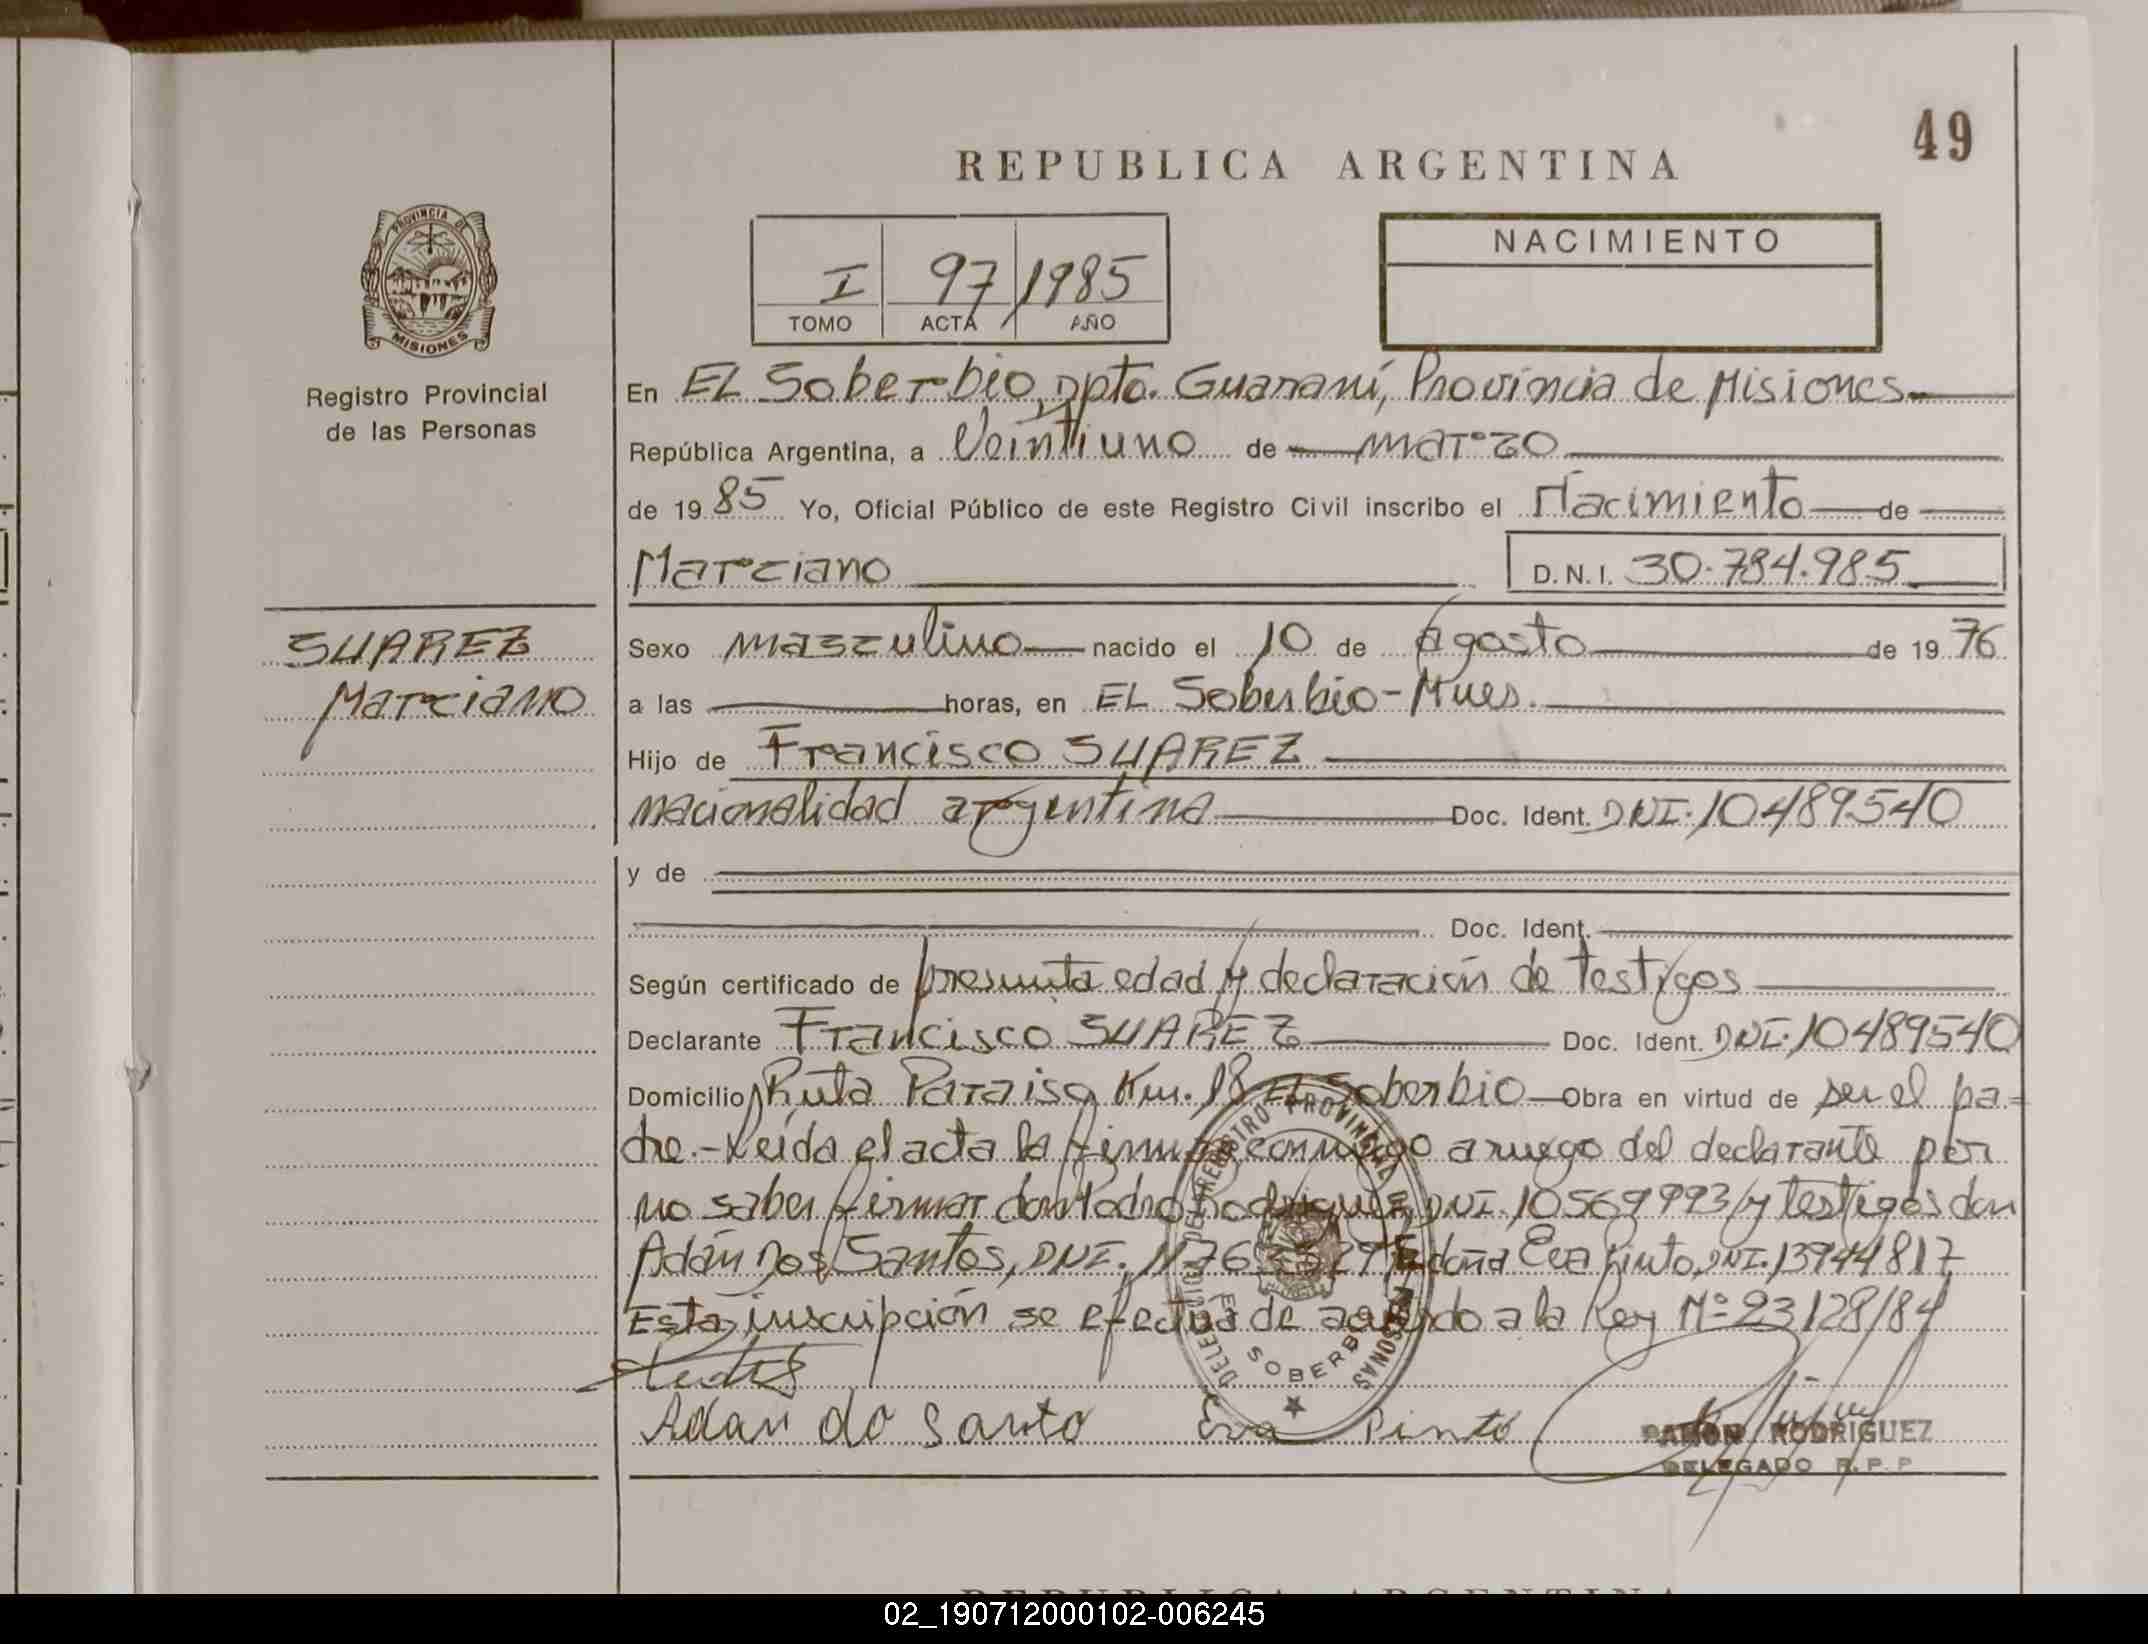 49
REPUBLICA ARGENTINA
PROVINCIA DE
MISIONES
Registro Provincial
de las Personas
I 97 1985
TOMO ACTA AÑO
NACIMIENTO
En EL Soberbio, Dpto. Guaraní, Provincia de Misiones
República Argentina, a Veintiuno de marzo
de 1985 Yo, Oficial Público de este Registro Civil inscribo el Nacimiento de
Marciano D.N.I. 30.784.985
SUAREZ
Marciano
Sexo masculino nacido el 10 de Agosto de 1976
a las horas, en EL Soberbio - Mnes.
Hijo de Francisco SUAREZ
nacionalidad argentina Doc. Ident. DNI. 10489540
y de
Doc. Ident.
Según certificado de presunta edad y declaración de testigos
Declarante Francisco SUAREZ Doc. Ident. DNI. 10489540
Domicilio Ruta Paraiso Km. 18 EL Soberbio Obra en virtud de ser el pa=
dre.- Leída el acta la firma conmigo a ruego del declarante por
no saber firmar don Pedro Rodriguez DNI. 10569993 y testigos don
Adán Dos Santos, DNI. doña Eva Pinto, DNI. 13944817
Esta inscripción se efectúa de acuerdo a la Ley Nº 23128/84
Adan do Santo Eva Pinto
RAMON RODRIGUEZ
DELEGADO R.P.P
DELEGACION DEL REGISTRO PROVINCIAL DE LAS PERSONAS
EL SOBERBIO
REPUBLICA ARGENTINA
02_190712000102-006245